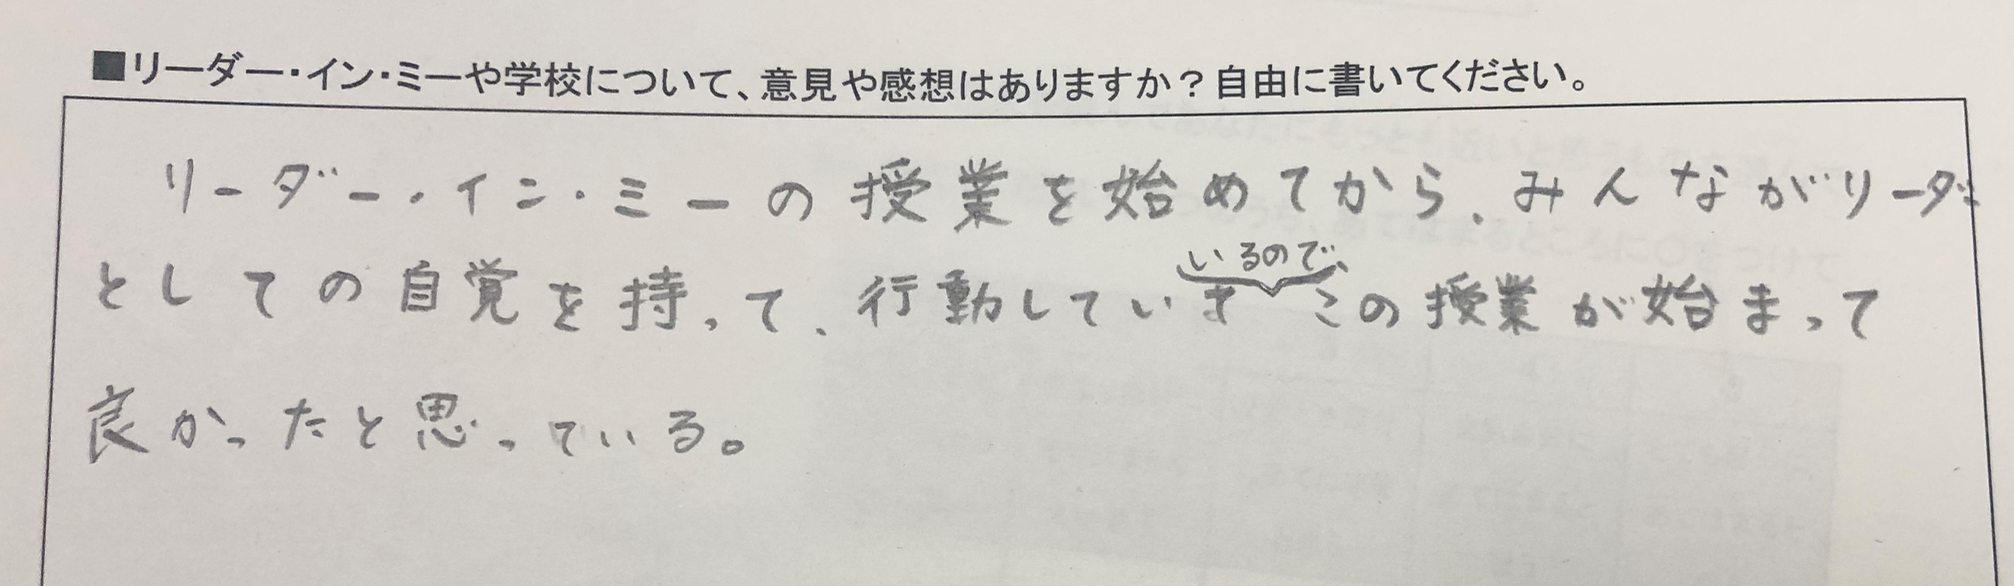 ■リーダー・イン・ミーや学校について、意見や感想はありますか？自由に書いてください。
リーダー・イン・ミーの授業を始めてから、みんながリーダー
いるので、
としての自覚を持って、行動していま この授業が始まって
良かったと思っている。